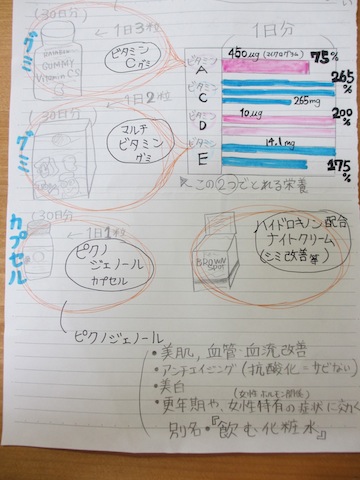 (30日分)
グミ
←1日3粒
ビタミン
Cグミ
GUMMY
Vitamin C
(30日分)
グミ
←1日2粒
マルチ
ビタミン
グミ
1日分
ビタミン
A
450μg (マイクログラム)
75%
ビタミン
C
265%
265mg
ビタミン
D
10μg
200%
ビタミン
E
14.1mg
175%
この2つでとれる栄養
カプセル
(30日分)
←1日1粒
ピクノ
ジェノール
カプセル
BROWN
SPOT
ハイドロキノン配合
ナイトクリーム
(シミ改善等)
ピクノジェノール
・美肌,血管・血流改善
・アンチエイジング(抗酸化=サビない)
・美白
(女性ホルモン関係)
・更年期や、女性特有の症状に効く
別名・『飲む化粧水』